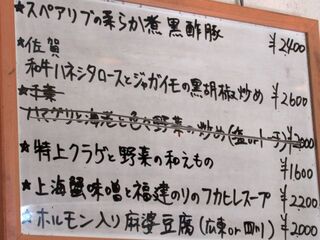 ★スペアリブの柔らか煮黒酢豚 ¥2400
★佐賀
和牛ハネシタロースとジャガイモの黒胡椒炒め ¥2600
★千葉
ハマグリと海老と色々野菜の炒め(塩or ¥2000
★特上クラゲと野菜の和えもの ¥1600
★上海蟹味噌と福建のりのフカヒレスープ ¥2200
★ホルモン入り麻婆豆腐(広東or四川) ¥2000